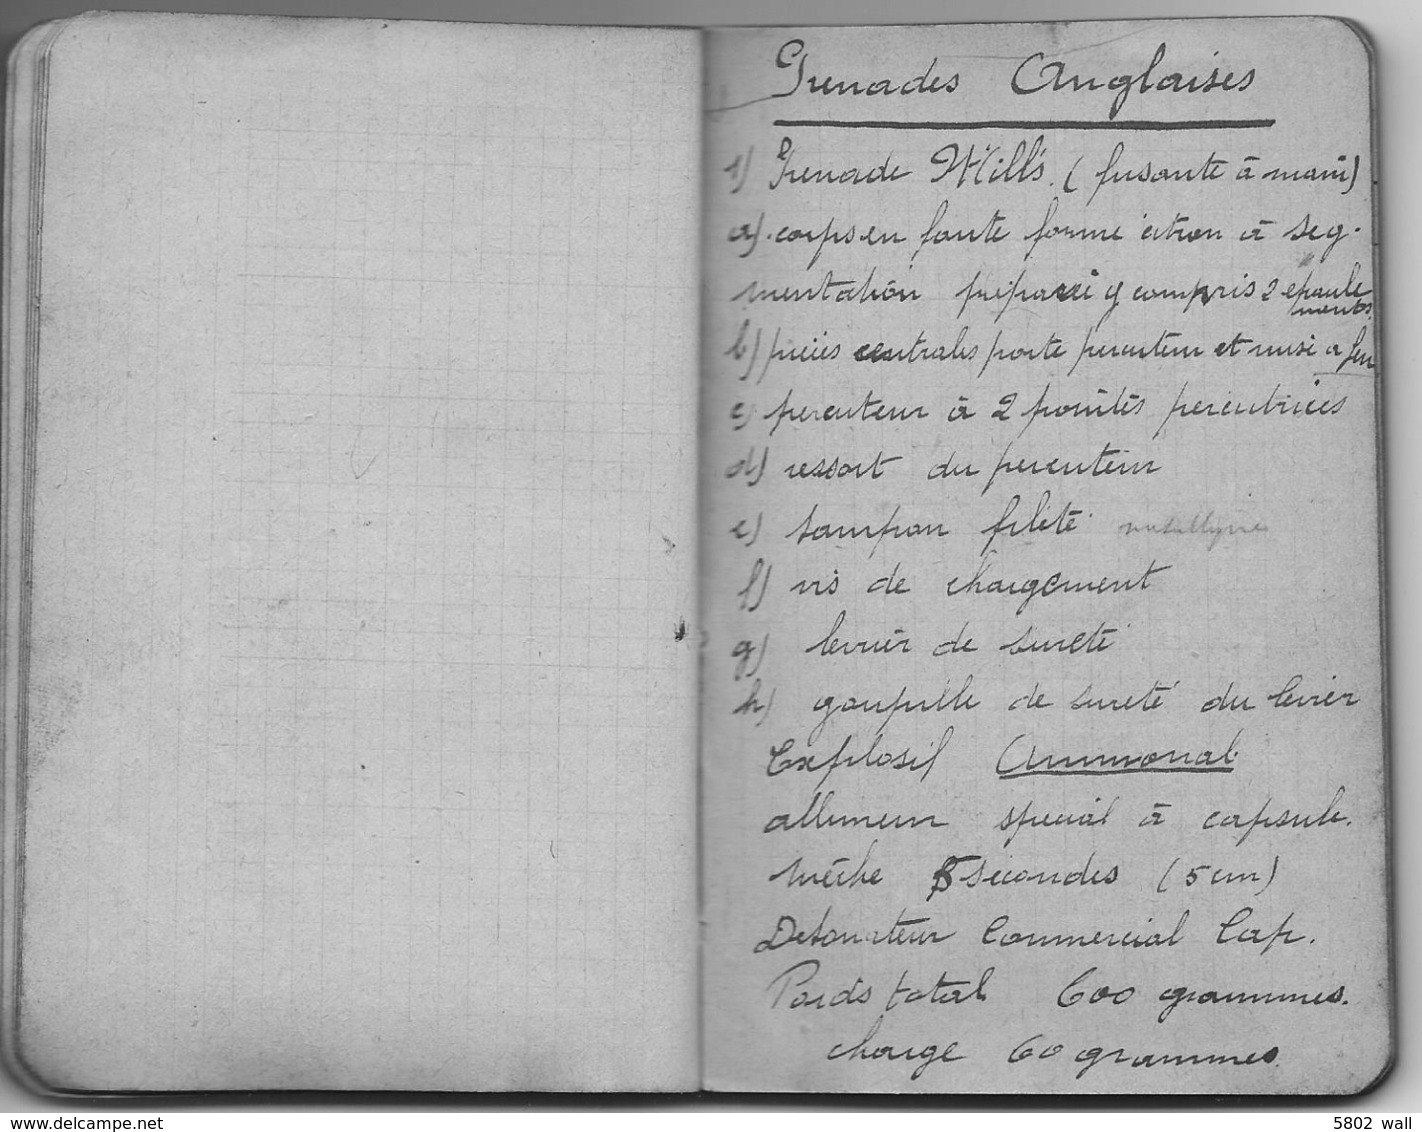 Grenades Anglaises
1) Grenade Mill's. (fusante à main)
a) corps en fonte forme citron à seg-
mentation préparé y compris 2 epaule
ments.
b) pièces centrales porte percuteur et mise a feu
c) percuteur à 2 pointes percutrices
d) ressort du percuteur
e) tampon fileté
f) vis de chargement
g) levier de sureté
h) goupille de sureté du levier
Explosif Ammonal
allumeur special à capsule.
mèche 5 secondes (5 cm)
Detonateur Commercial Cap.
Poids total 600 grammes.
charge 60 grammes
5802 wall